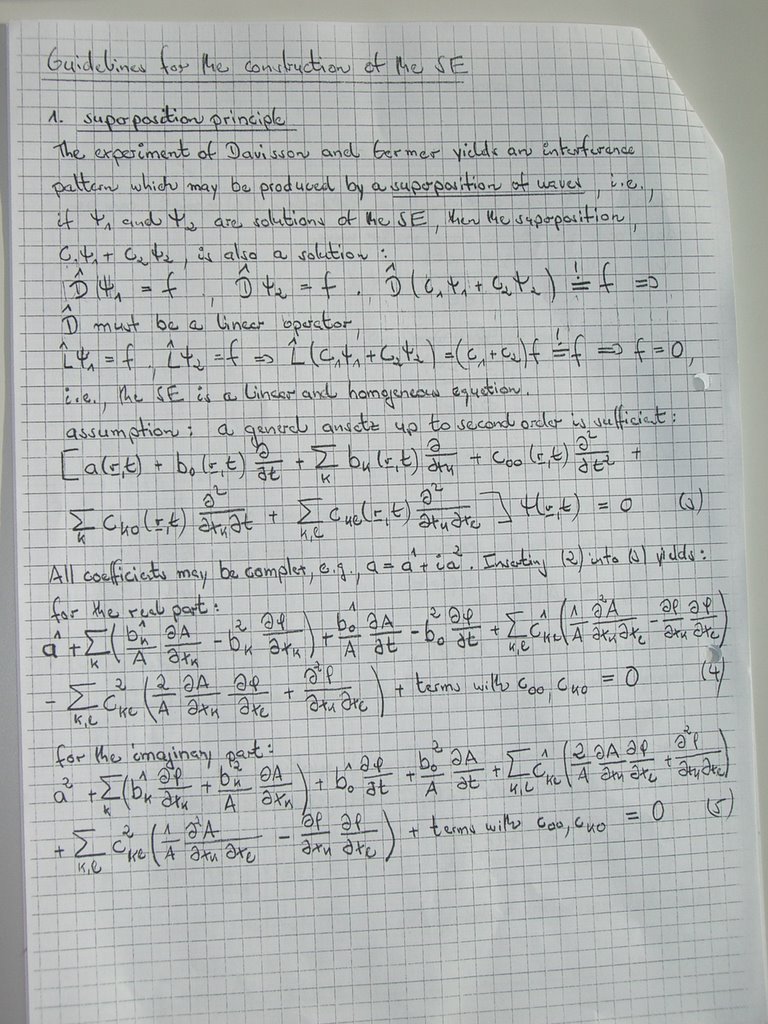 Guidelines for the construction of the SE
1. superposition principle
The experiment of Davisson and Germer yields an interference
pattern which may be produced by a superposition of waves, i.e.,
if Ψ₁ and Ψ₂ are solutions of the SE, then the superposition,
C₁Ψ₁ + C₂Ψ₂, is also a solution:
D̂Ψ₁ = f , D̂Ψ₂ = f . D̂(C₁Ψ₁ + C₂Ψ₂) =! f ⇒
D̂ must be a linear operator,
L̂Ψ₁ = f , L̂Ψ₂ = f ⇒ L̂(C₁Ψ₁ + C₂Ψ₂) = (C₁ + C₂)f =! f ⇒ f = 0,
i.e., the SE is a linear and homogeneous equation.
assumption: a general ansatz up to second order is sufficient:
[a(r,t) + b₀(r,t) ∂/∂t + Σ_k b_k(r,t) ∂/∂x_k + c₀₀(r,t) ∂²/∂t² +
Σ_k c_k0(r,t) ∂²/∂x_k∂t + Σ_k,l c_kl(r,t) ∂²/∂x_k∂x_l] Ψ(r,t) = 0 (3)
All coefficients may be complex, e.g., a = a¹ + ia². Inserting (2) into (3) yields:
for the real part:
a¹ + Σ_k (b_k¹/A ∂A/∂x_k − b_k² ∂φ/∂x_k) + b₀¹/A ∂A/∂t − b₀² ∂φ/∂t + Σ_k,l c_kl¹ (1/A ∂²A/∂x_k∂x_l − ∂φ/∂x_k ∂φ/∂x_l)
− Σ_k,l c_kl² (2/A ∂A/∂x_k ∂φ/∂x_l + ∂²φ/∂x_k∂x_l) + terms with c₀₀, c_k0 = 0 (4)
for the imaginary part:
a² + Σ_k (b_k¹ ∂φ/∂x_k + b_k²/A ∂A/∂x_k) + b₀¹ ∂φ/∂t + b₀²/A ∂A/∂t + Σ_k,l c_kl¹ (2/A ∂A/∂x_k ∂φ/∂x_l + ∂²φ/∂x_k∂x_l)
+ Σ_k,l c_kl² (1/A ∂²A/∂x_k∂x_l − ∂φ/∂x_k ∂φ/∂x_l) + terms with c₀₀, c_k0 = 0 (5)